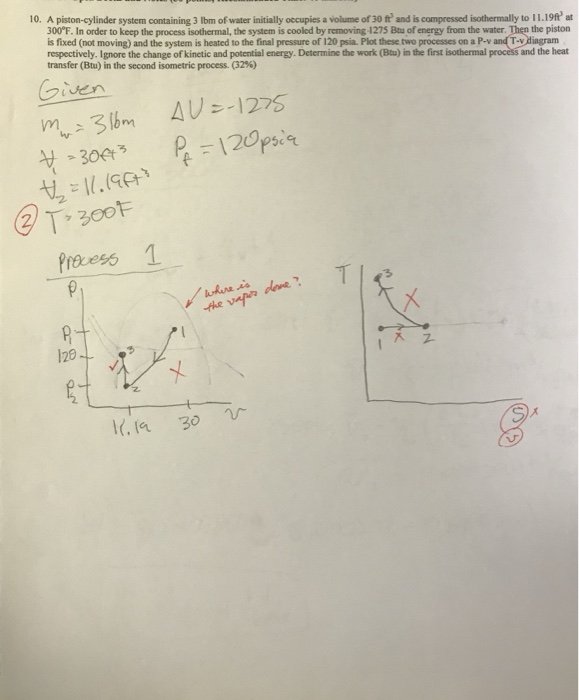 10. A piston-cylinder system containing 3 lbm of water initially occupies a volume of 30 ft³ and is compressed isothermally to 11.19ft³ at
300°F. In order to keep the process isothermal, the system is cooled by removing 1275 Btu of energy from the water. Then the piston
is fixed (not moving) and the system is heated to the final pressure of 120 psia. Plot these two processes on a P-v and T-v diagram
respectively. Ignore the change of kinetic and potential energy. Determine the work (Btu) in the first isothermal process and the heat
transfer (Btu) in the second isometric process. (32%)
Given
m_w = 3 lbm ΔU = -1275
V₁ = 30ft³ P_f = 120psia
V₂ = 11.19ft³
② T = 300°F
Process 1
P
where is
the vapor dome?
P₁
120
P₂
1
3
2
X
11.19 30 v
T
3
X
1 X 2
S x
v